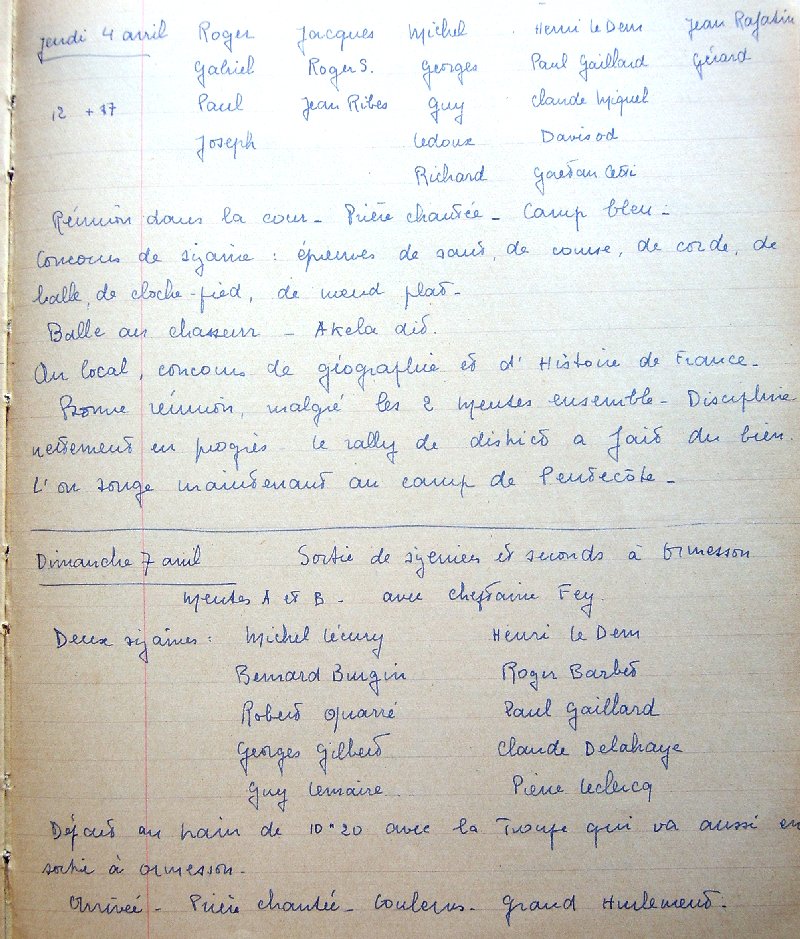 Jeudi 4 avril Roger Jacques Michel Henri Le Dem Jean Rafatin
Gabriel Roger S. Georges Paul Gaillard Gérard
12 + 37 Paul Jean Ribes Guy Claude Miquel
Joseph Ledoux Davisod
Richard Gaetan
Réunion dans la cour - Prière chantée - Camp bleu -
Concours de sizaine : épreuves de saut, de course, de corde, de
balle, de cloche-pied, de nœud plat -
Balle au chasseur - Akela dit.
Au local, concours de géographie et d'Histoire de France -
Bonne réunion, malgré les 2 Meutes ensemble - Discipline
nettement en progrès - le rally de district a fait du bien.
L'on songe maintenant au camp de Pentecôte -
Dimanche 7 avril Sortie de sizeniers et seconds à Ormesson
Meutes A et B - avec Cheftaine Fey.
Deux sizaines : Michel Lécury Henri Le Dem
Bernard Burgin Roger Barbet
Robert Quarré Paul Gaillard
Georges Gilbert Claude Delahaye
Guy Lemaire Pierre Leclercq
Départ au train de 10h20 avec la Troupe qui va aussi en
sortie à Ormesson -
Arrivée - Prière chantée - Couleurs - Grand Hurlement -